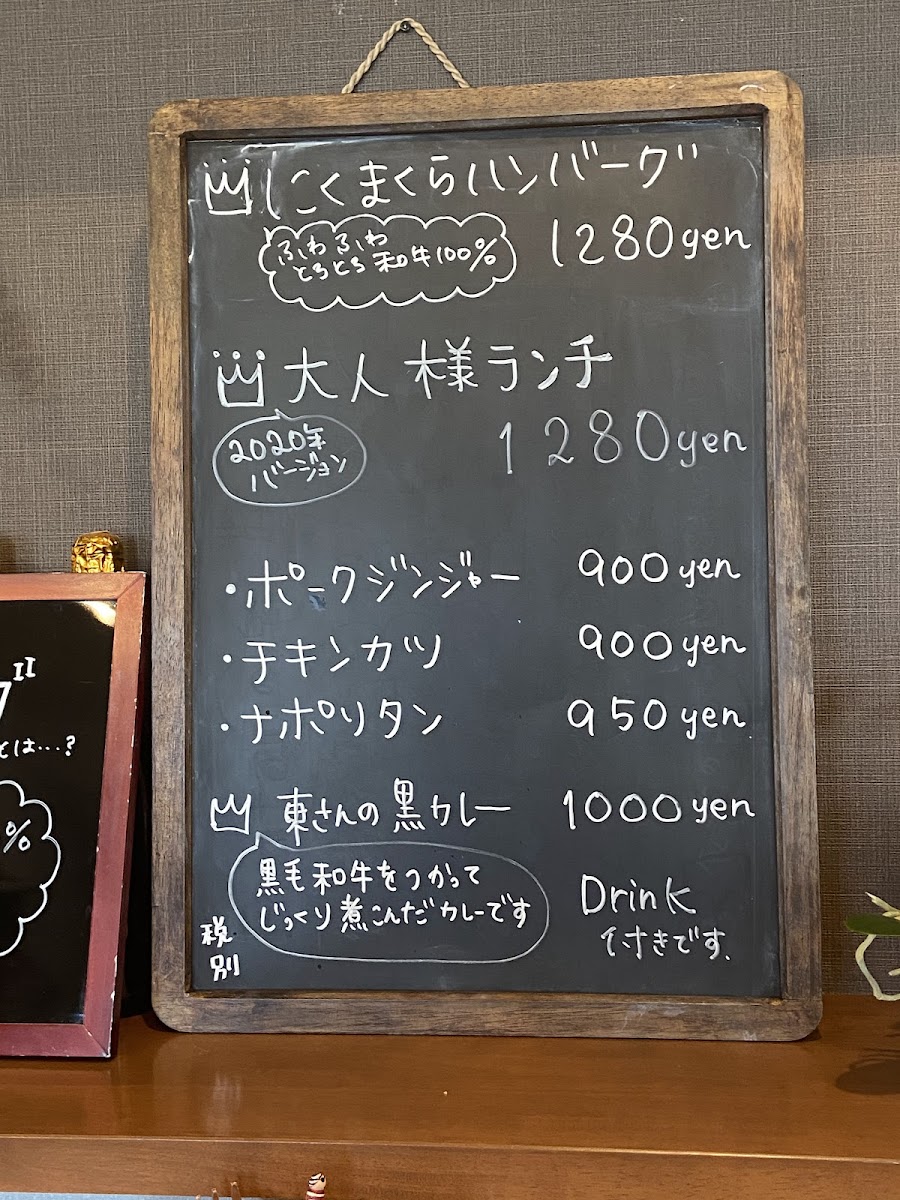 にくまくらハンバーグ
ふわふわ
とろとろ 和牛100%
1280yen
大人様ランチ
2020年
バージョン
1280yen
・ポークジンジャー 900yen
・チキンカツ 900yen
・ナポリタン 950yen
東さんの黒カレー 1000yen
黒毛和牛をつかって
じっくり煮こんだカレーです
Drink
付きです.
税
別
とは…?
%